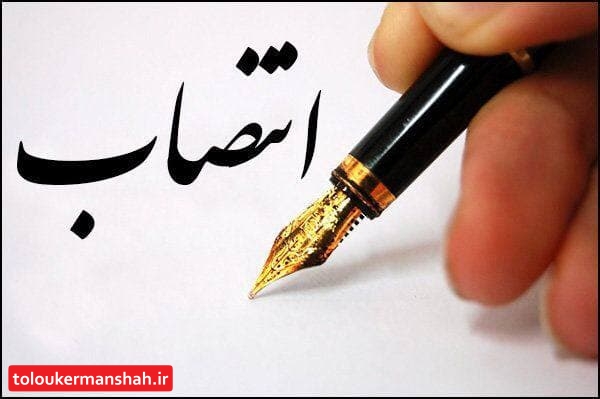 انتصاب
toloukermanshah.ir